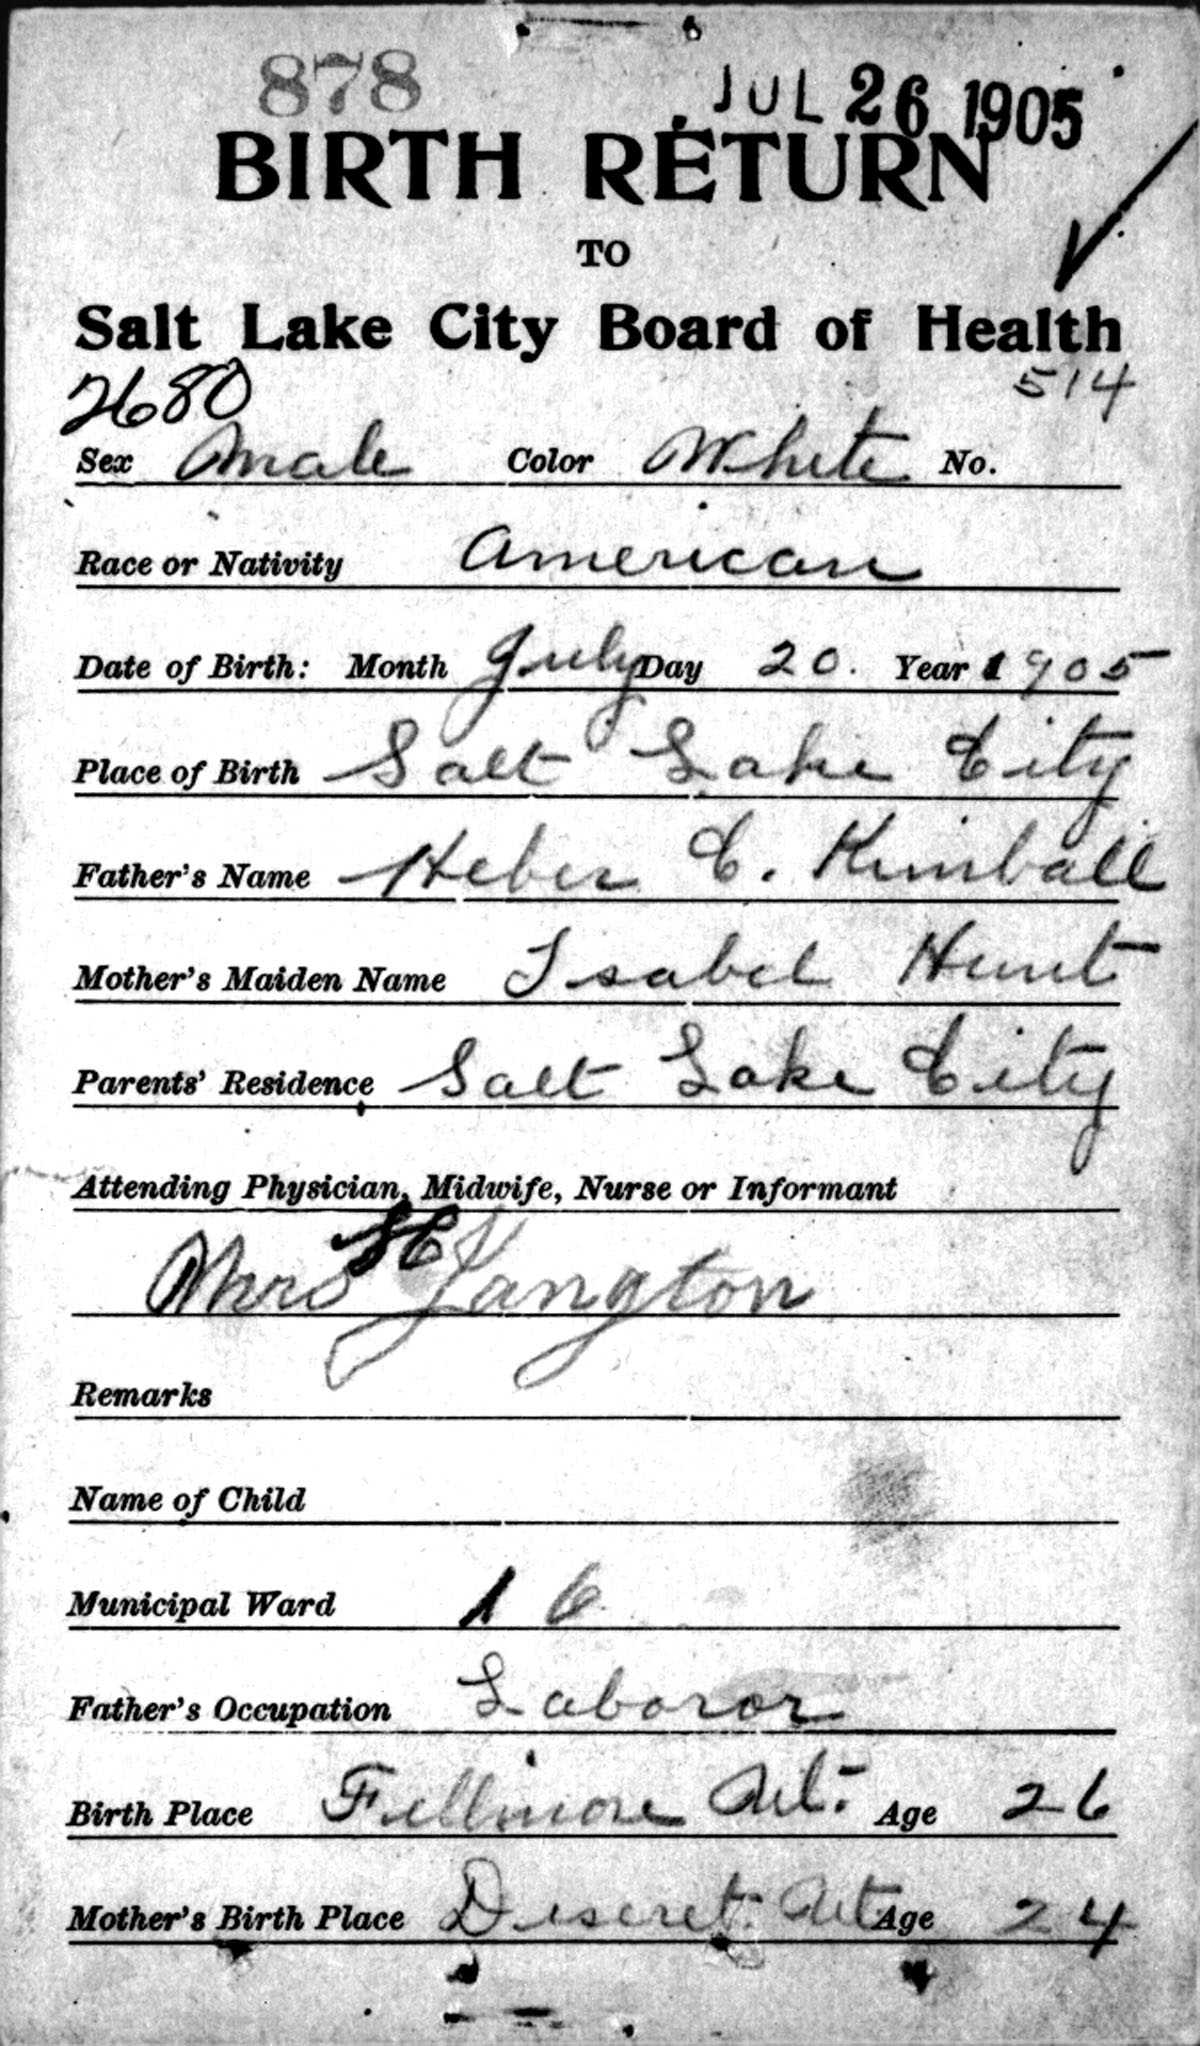 878 JUL 26 1905
BIRTH RETURN
TO
Salt Lake City Board of Health
2680 514
Sex Male Color White No.
Race or Nativity American
Date of Birth: Month July Day 20. Year 1905
Place of Birth Salt Lake City
Father's Name Heber C. Kimball
Mother's Maiden Name Isabel Hunt
Parents' Residence Salt Lake City
Attending Physician, Midwife, Nurse or Informant
Mrs Langton
Remarks
Name of Child
Municipal Ward 16
Father's Occupation Laboror
Birth Place Fillmore Ut. Age 26
Mother's Birth Place Deseret Ut Age 24